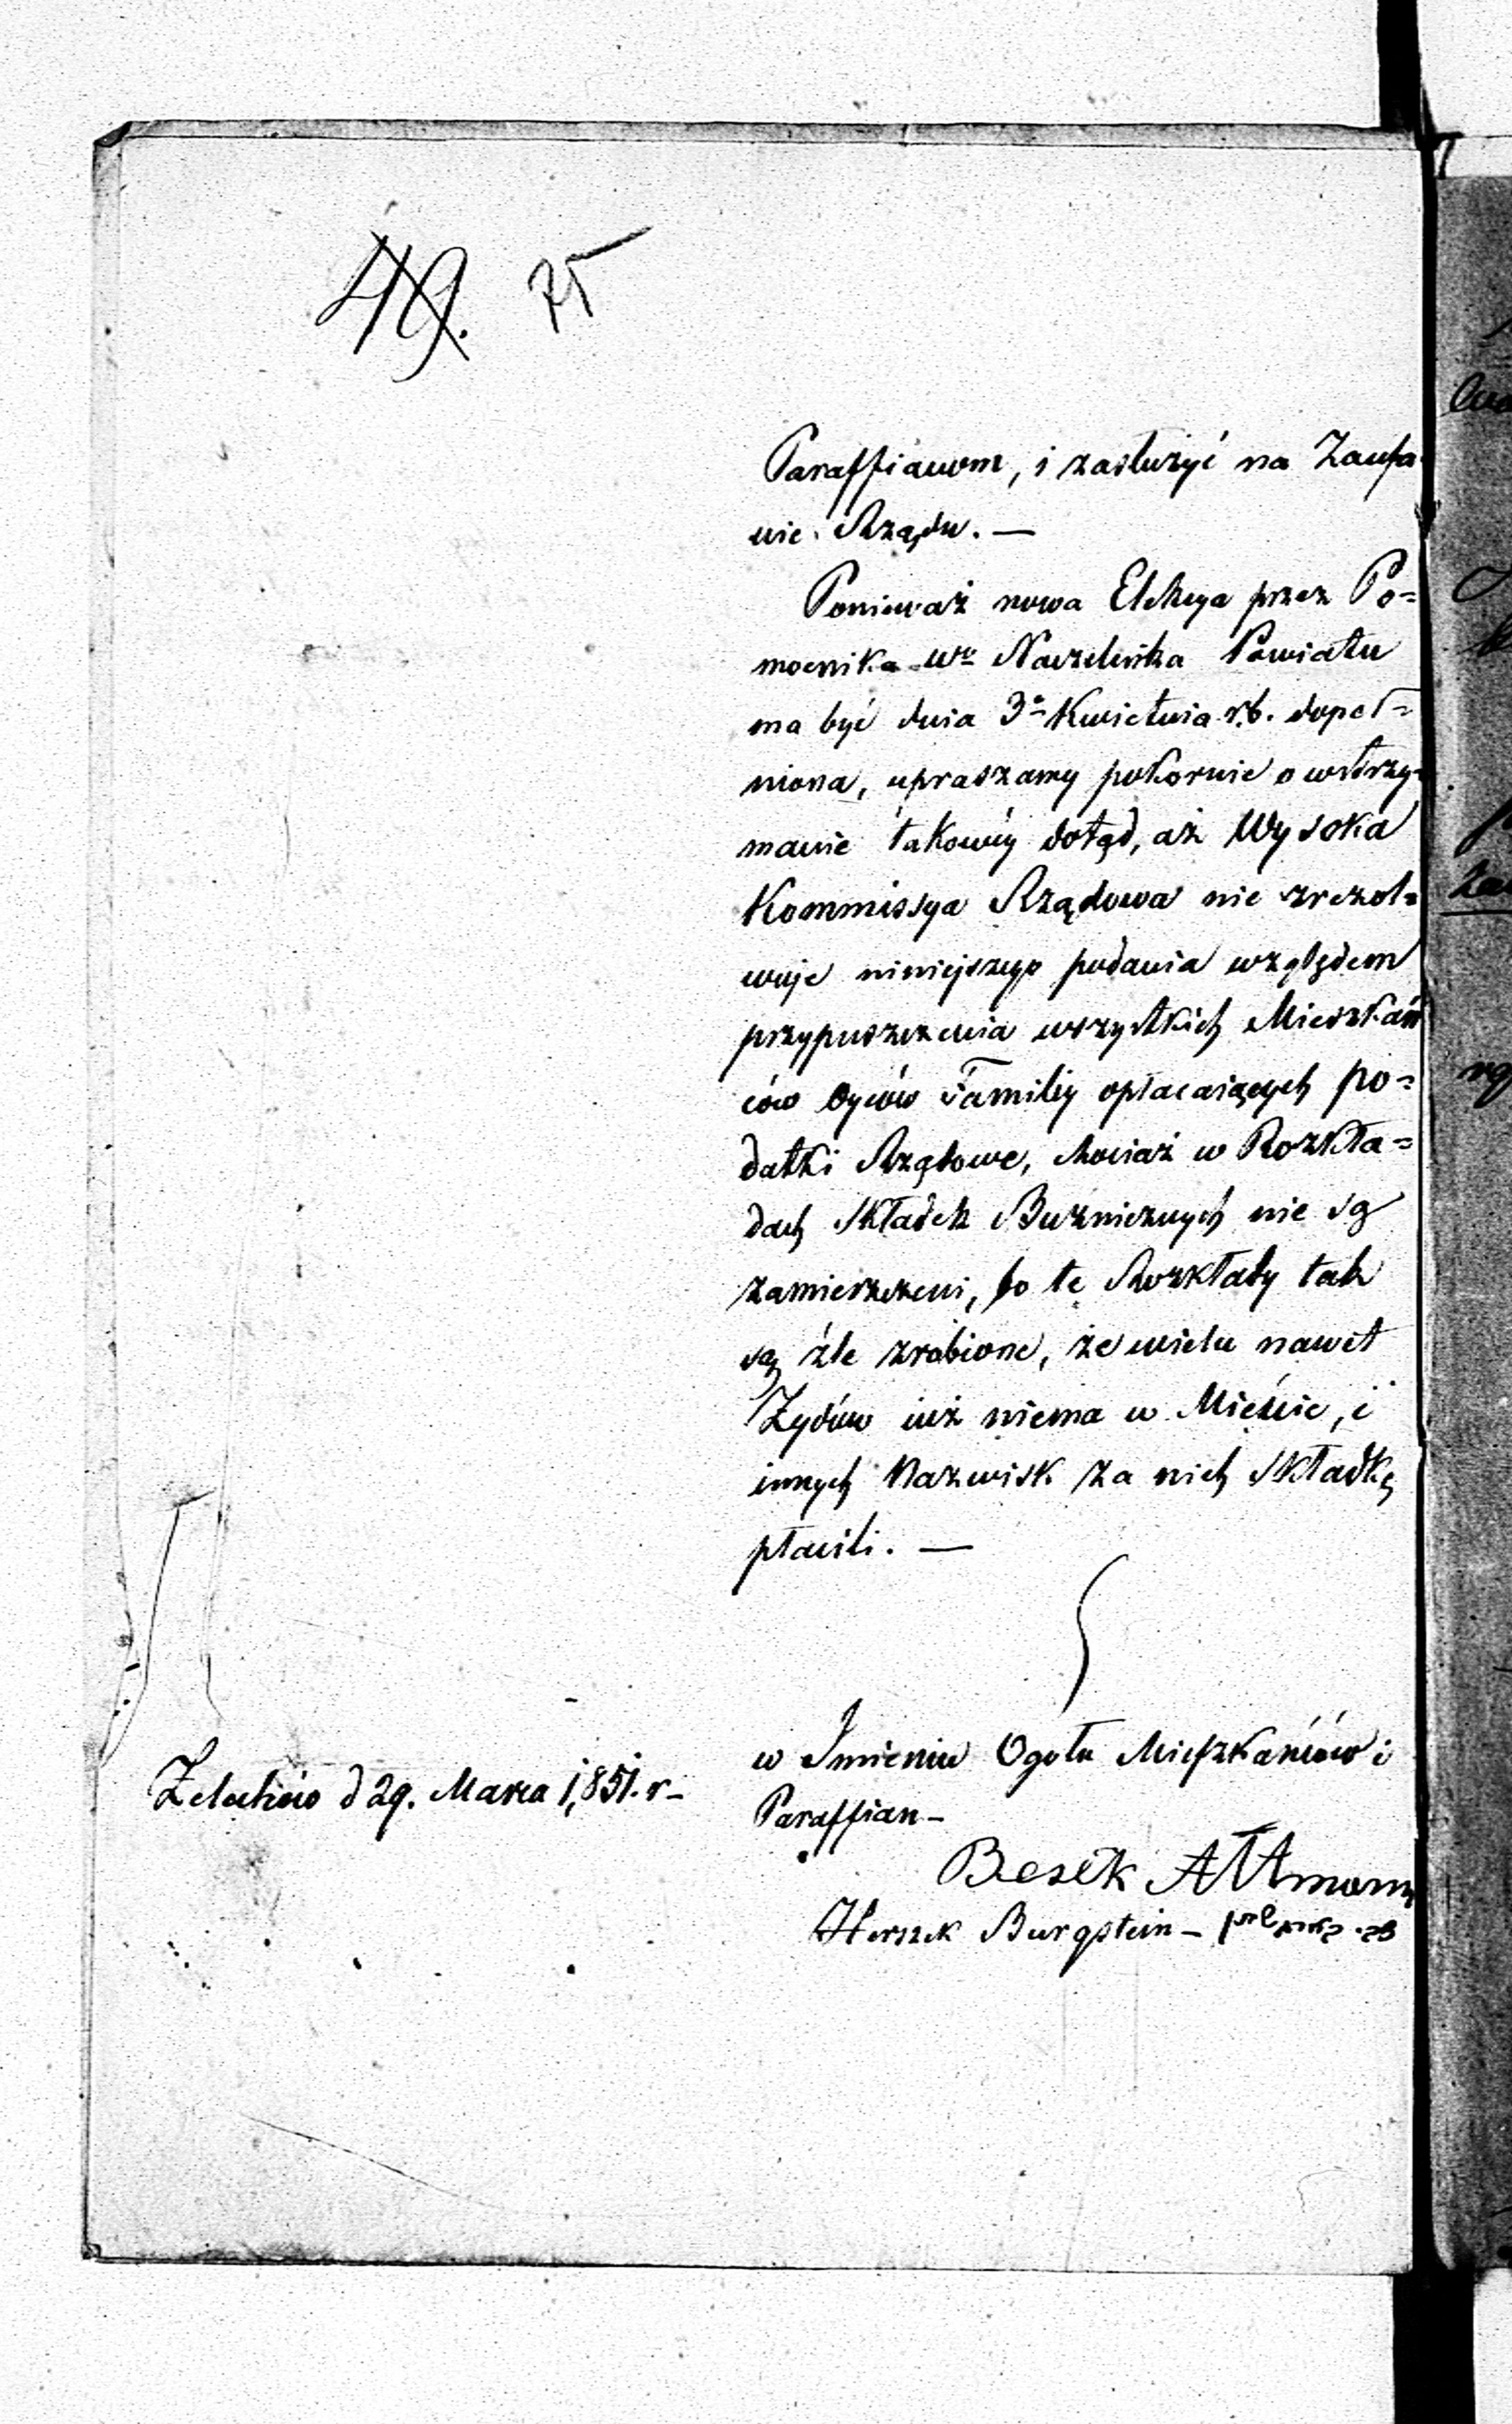 49. 75
Paraffianom, i zasłużyć na Zaufa
nie Rządu. —
Ponieważ nowa Elekcya przez Po=
mocnika Wo Naczelnika Powiatu
ma być dnia 3o Kwietnia r.b. dopeł=
niona, upraszamy pokornie o wstrzy=
manie takowéy dotąd, aż Wysoka
Kommissya Rządowa nie zrezol=
wuje niniejszego podania względem
przypuszczenia wszystkich Mieszkań
ców Oyców Familiy opłacaiących po=
datki Rządowe, chociaż w Rozkła=
dach Składek Bużnicznych nie są
zamieszczeni, bo te Rozkłady tak
są źle zrobione, że wielu nawet
Żydów iuż niema w Mieście, i
innych Nazwisk za nich Składkę
płacili. —
w Imieniu Ogołu Mieszkańców i
Paraffian –
Żelechów d 29. Marca 1,851. r –
Besek Altmann
Herszek Burgstein –